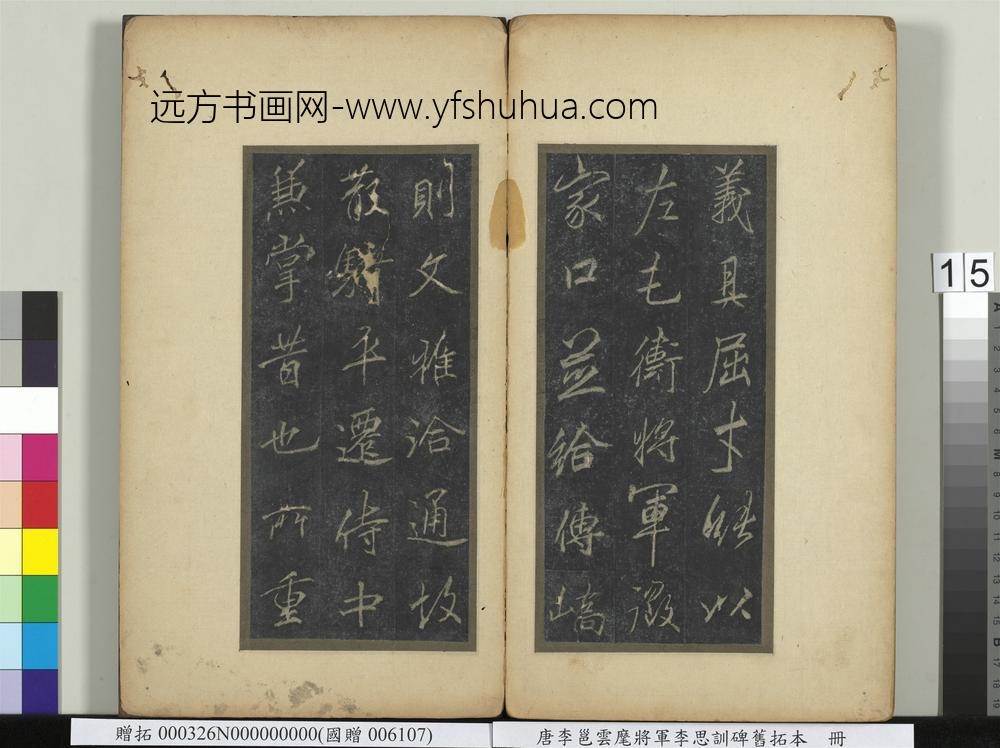 远方书画网-www.yfshuhua.com
義具屈才能以
左屯衛將軍徵
家口並給傳
則文雅洽通故
散騎平遷侍中
兼掌昔也所重
15
贈拓 000326N000000000(國贈 006107)
唐李邕雲麾將軍李思訓碑舊拓本 冊